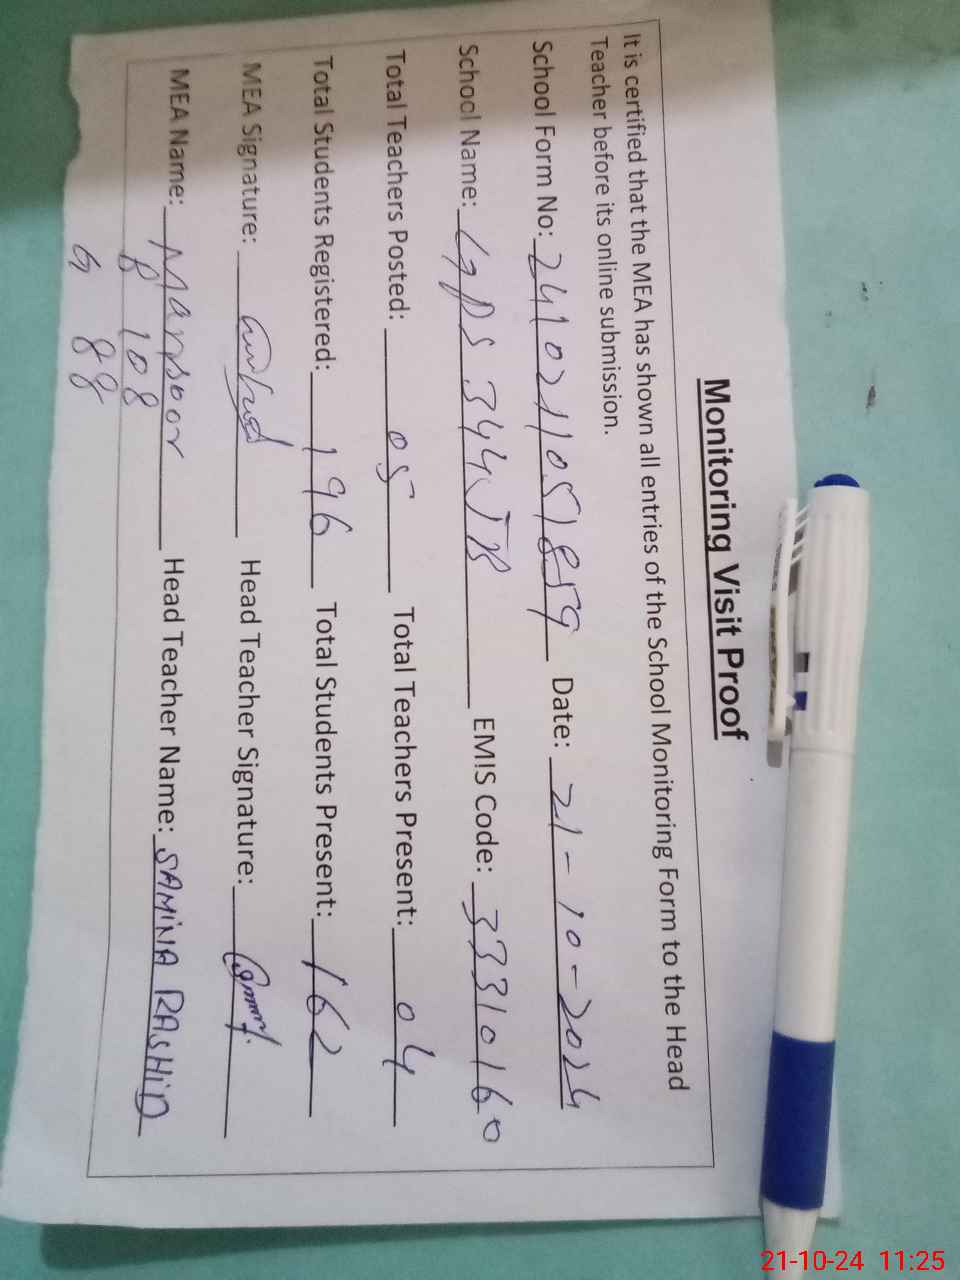 Monitoring Visit Proof
It is certified that the MEA has shown all entries of the School Monitoring Form to the Head
Teacher before its online submission.
School Form No: 2410211051859 Date: 21-10-2024
School Name: GPS 344 JB EMIS Code: 33310160
Total Teachers Posted: 05 Total Teachers Present: 04
Total Students Registered: 196 Total Students Present: 162
MEA Signature: Head Teacher Signature:
MEA Name: Mansoor Head Teacher Name: SAMINA RASHID
B 108
G 88
21-10-24 11:25